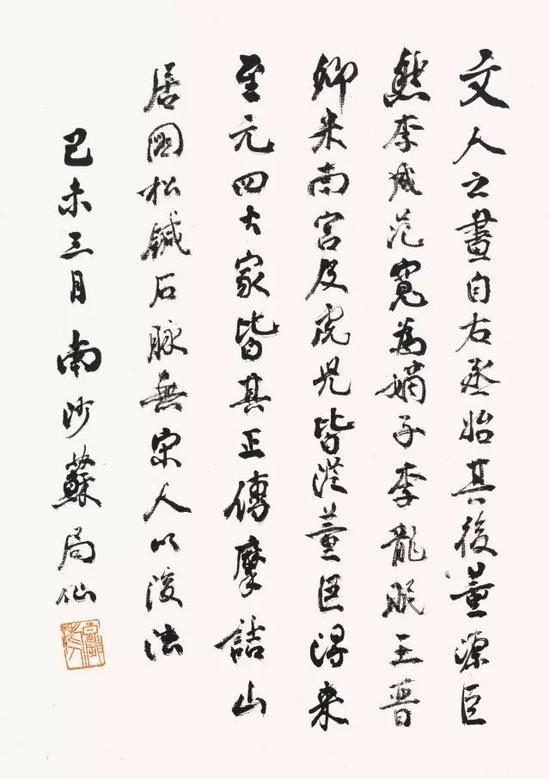 文人之畫自右丞始其後董源巨
然李成范寬為嫡子李龍眠王晉
卿米南宮及虎兒皆從董巨得来
至元四大家皆其正傳摩詰山
居圖松鍼石脉無宋人以後法
己未三月南沙蘇局仙